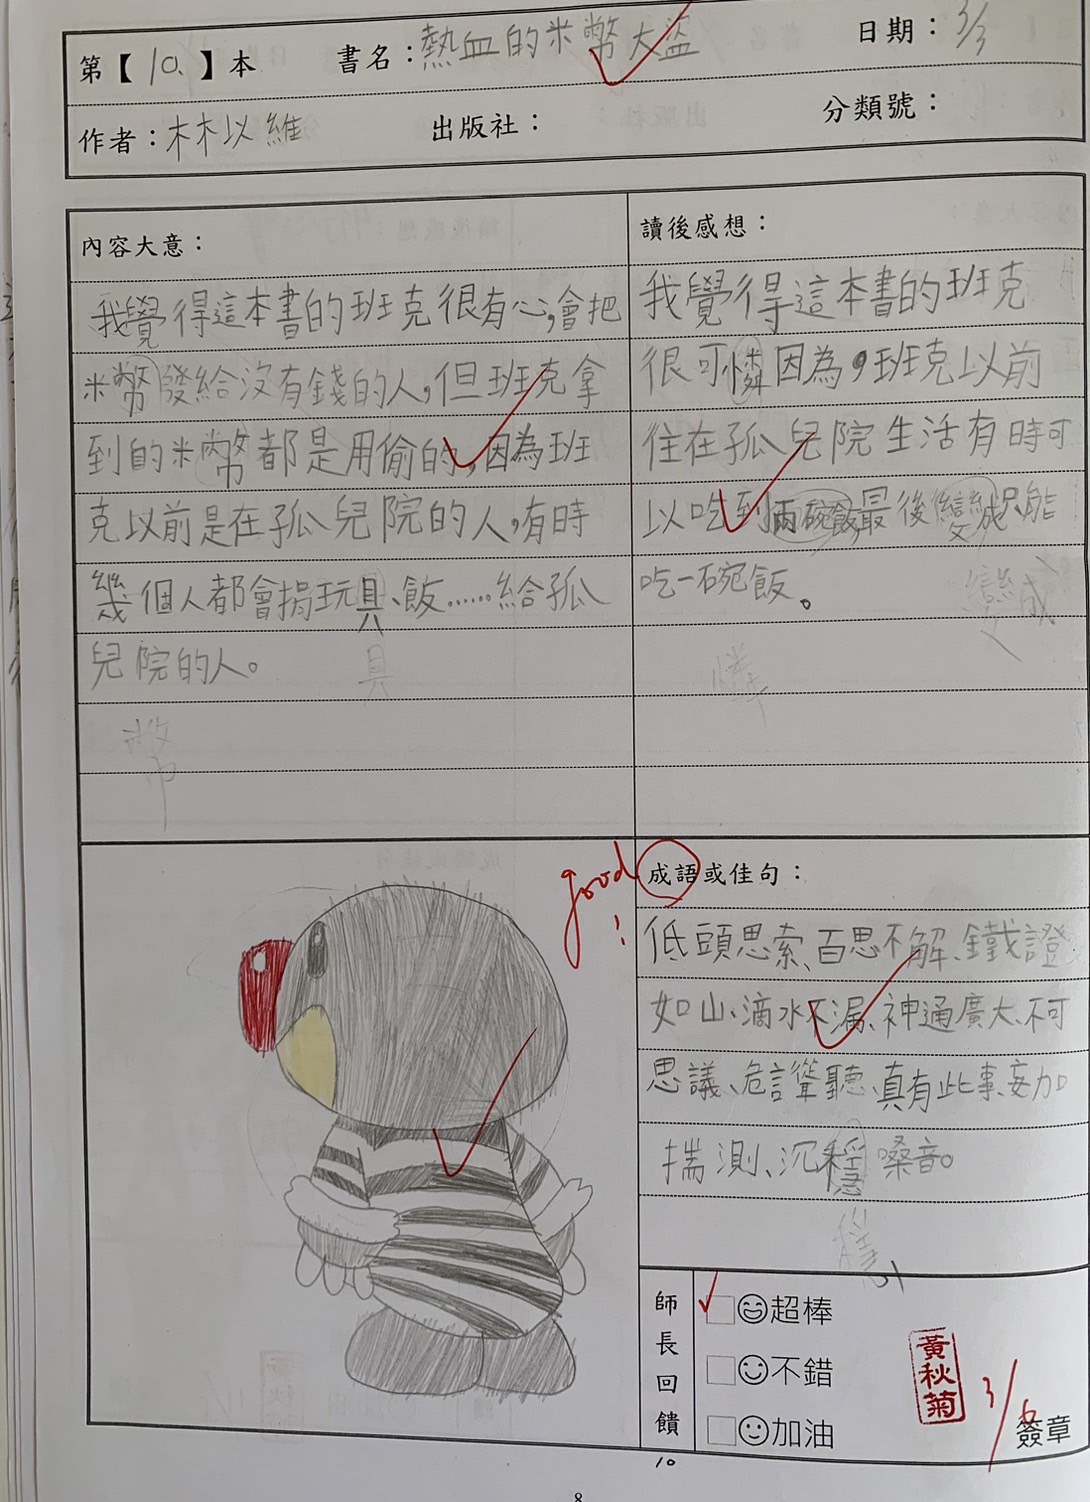 第【10.】本 書名：熱血的米幣大盜 日期：3/3
作者：林以維 出版社： 分類號：
內容大意：
我覺得這本書的班克很有心，會把
米幣發給沒有錢的人，但班克拿
到的米幣都是用偷的，因為班
克以前是在孤兒院的人，有時
幾個人都會捐玩具、飯……給孤
兒院的人。
具
幣
讀後感想：
我覺得這本書的班克
很可憐因為，班克以前
住在孤兒院生活有時可
以吃到兩碗飯最後變成只能
吃一碗飯。
變成
憐
good!
成語或佳句：
低頭思索、百思不解、鐵證
如山、滴水不漏、神通廣大、不可
思議、危言聳聽、真有此事、妄加
揣測、沉穩嗓音。
穩
師長回饋
超棒
不錯
加油
黃秋菊
3/6
簽章
10
8